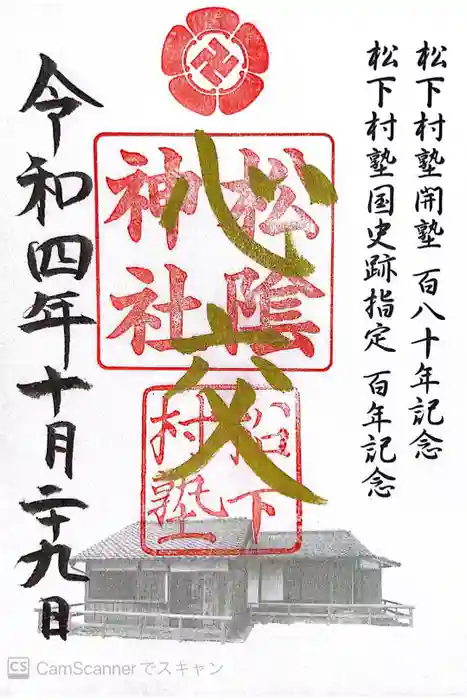 松下村塾開塾 百八十年記念
松下村塾国史跡指定 百年記念
交
松陰
神社
松下
村塾
令和四年十月二十九日
CS CamScannerでスキャン